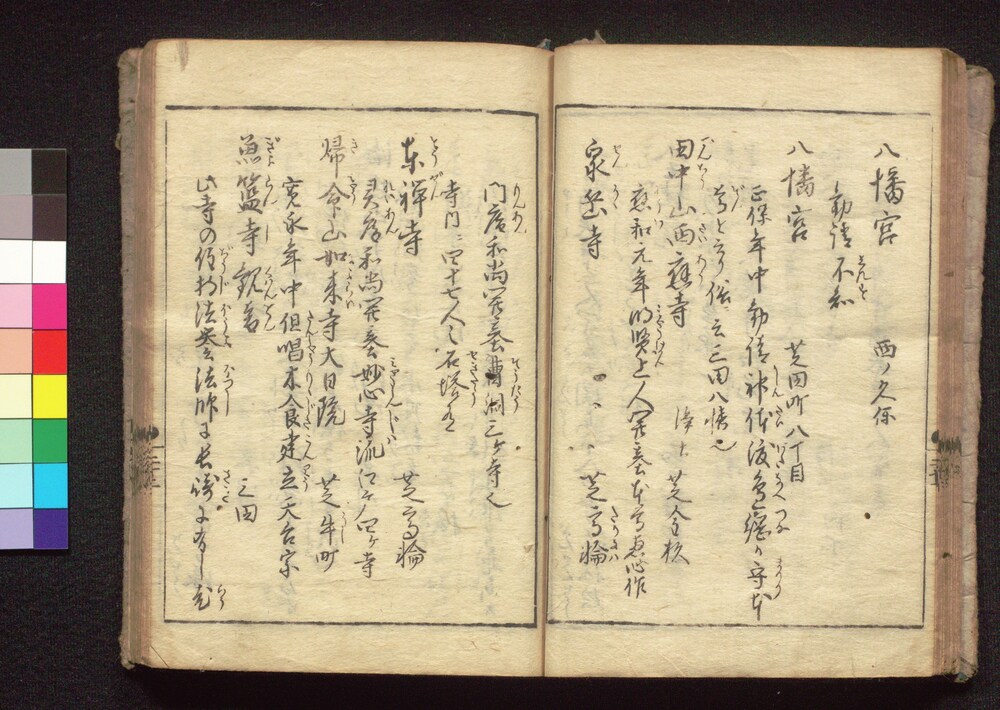 八幡宮 西ノ久保
勧請不知
八幡宮 芝田町八丁目
正保年中勧請神体渡邉綱カ守本
尊と云り俗ニ云三田八幡也
田中山西應寺 浄土 芝金杦
應和元年明賢上人開基本尊恵心作
泉岳寺 芝高輪
門庵和尚開基曹洞三ヶ寺
寺内ニ四十七人之石塔有
東禅寺 芝高輪
和尚開基妙心寺流江戸四ヶ寺
帰命山如来寺大日院 芝牛町
寛永年中但唱木食建立天台宗
魚籃寺 観音 三田
此寺の住持法誉法師長崎に有し